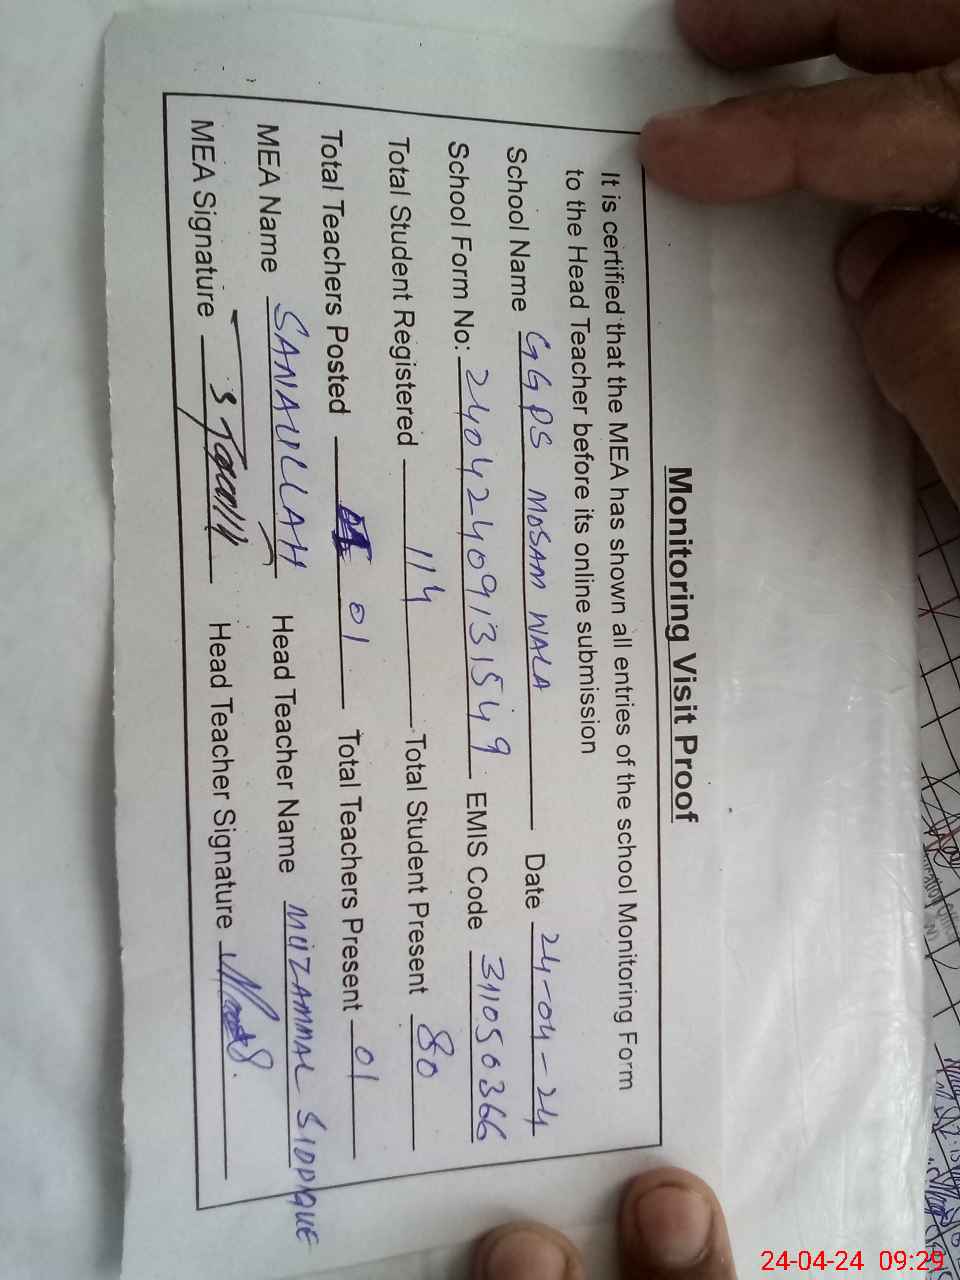 Monitoring Visit Proof
It is certified that the MEA has shown all entries of the school Monitoring Form
to the Head Teacher before its online submission
School Name GGPS MOSAM WALA Date 24-04-24
School Form No: 24042409131549 EMIS Code 311050366
Total Student Registered 114 Total Student Present 80
Total Teachers Posted 01 Total Teachers Present 01
MEA Name SANAULLAH Head Teacher Name MUZAMMAL SIDDIQUE
MEA Signature Head Teacher Signature
24-04-24 09:29